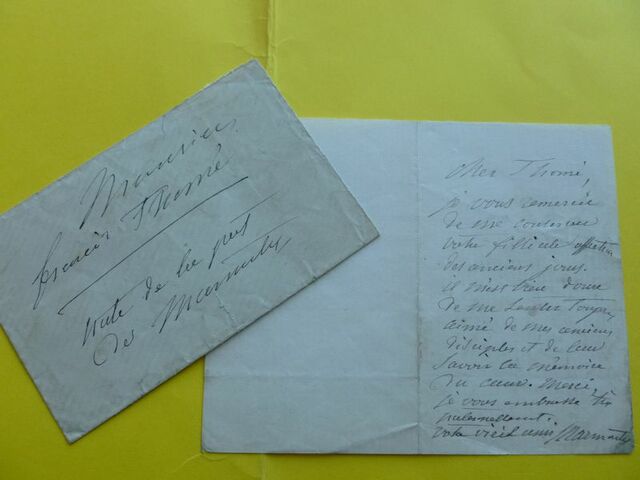 Monsieur
francis Thomé
de la part
de Marmontel
cher Thomé,
je vous remercie
de me conserver
votre affection
des anciens jours.
il m'est bien doux
de me sentir toujours
aimé de mes anciens
disciples et de leur
savoir la mémoire
du cœur. Merci,
je vous embrasse très
paternellement.
votre vieil ami Marmontel